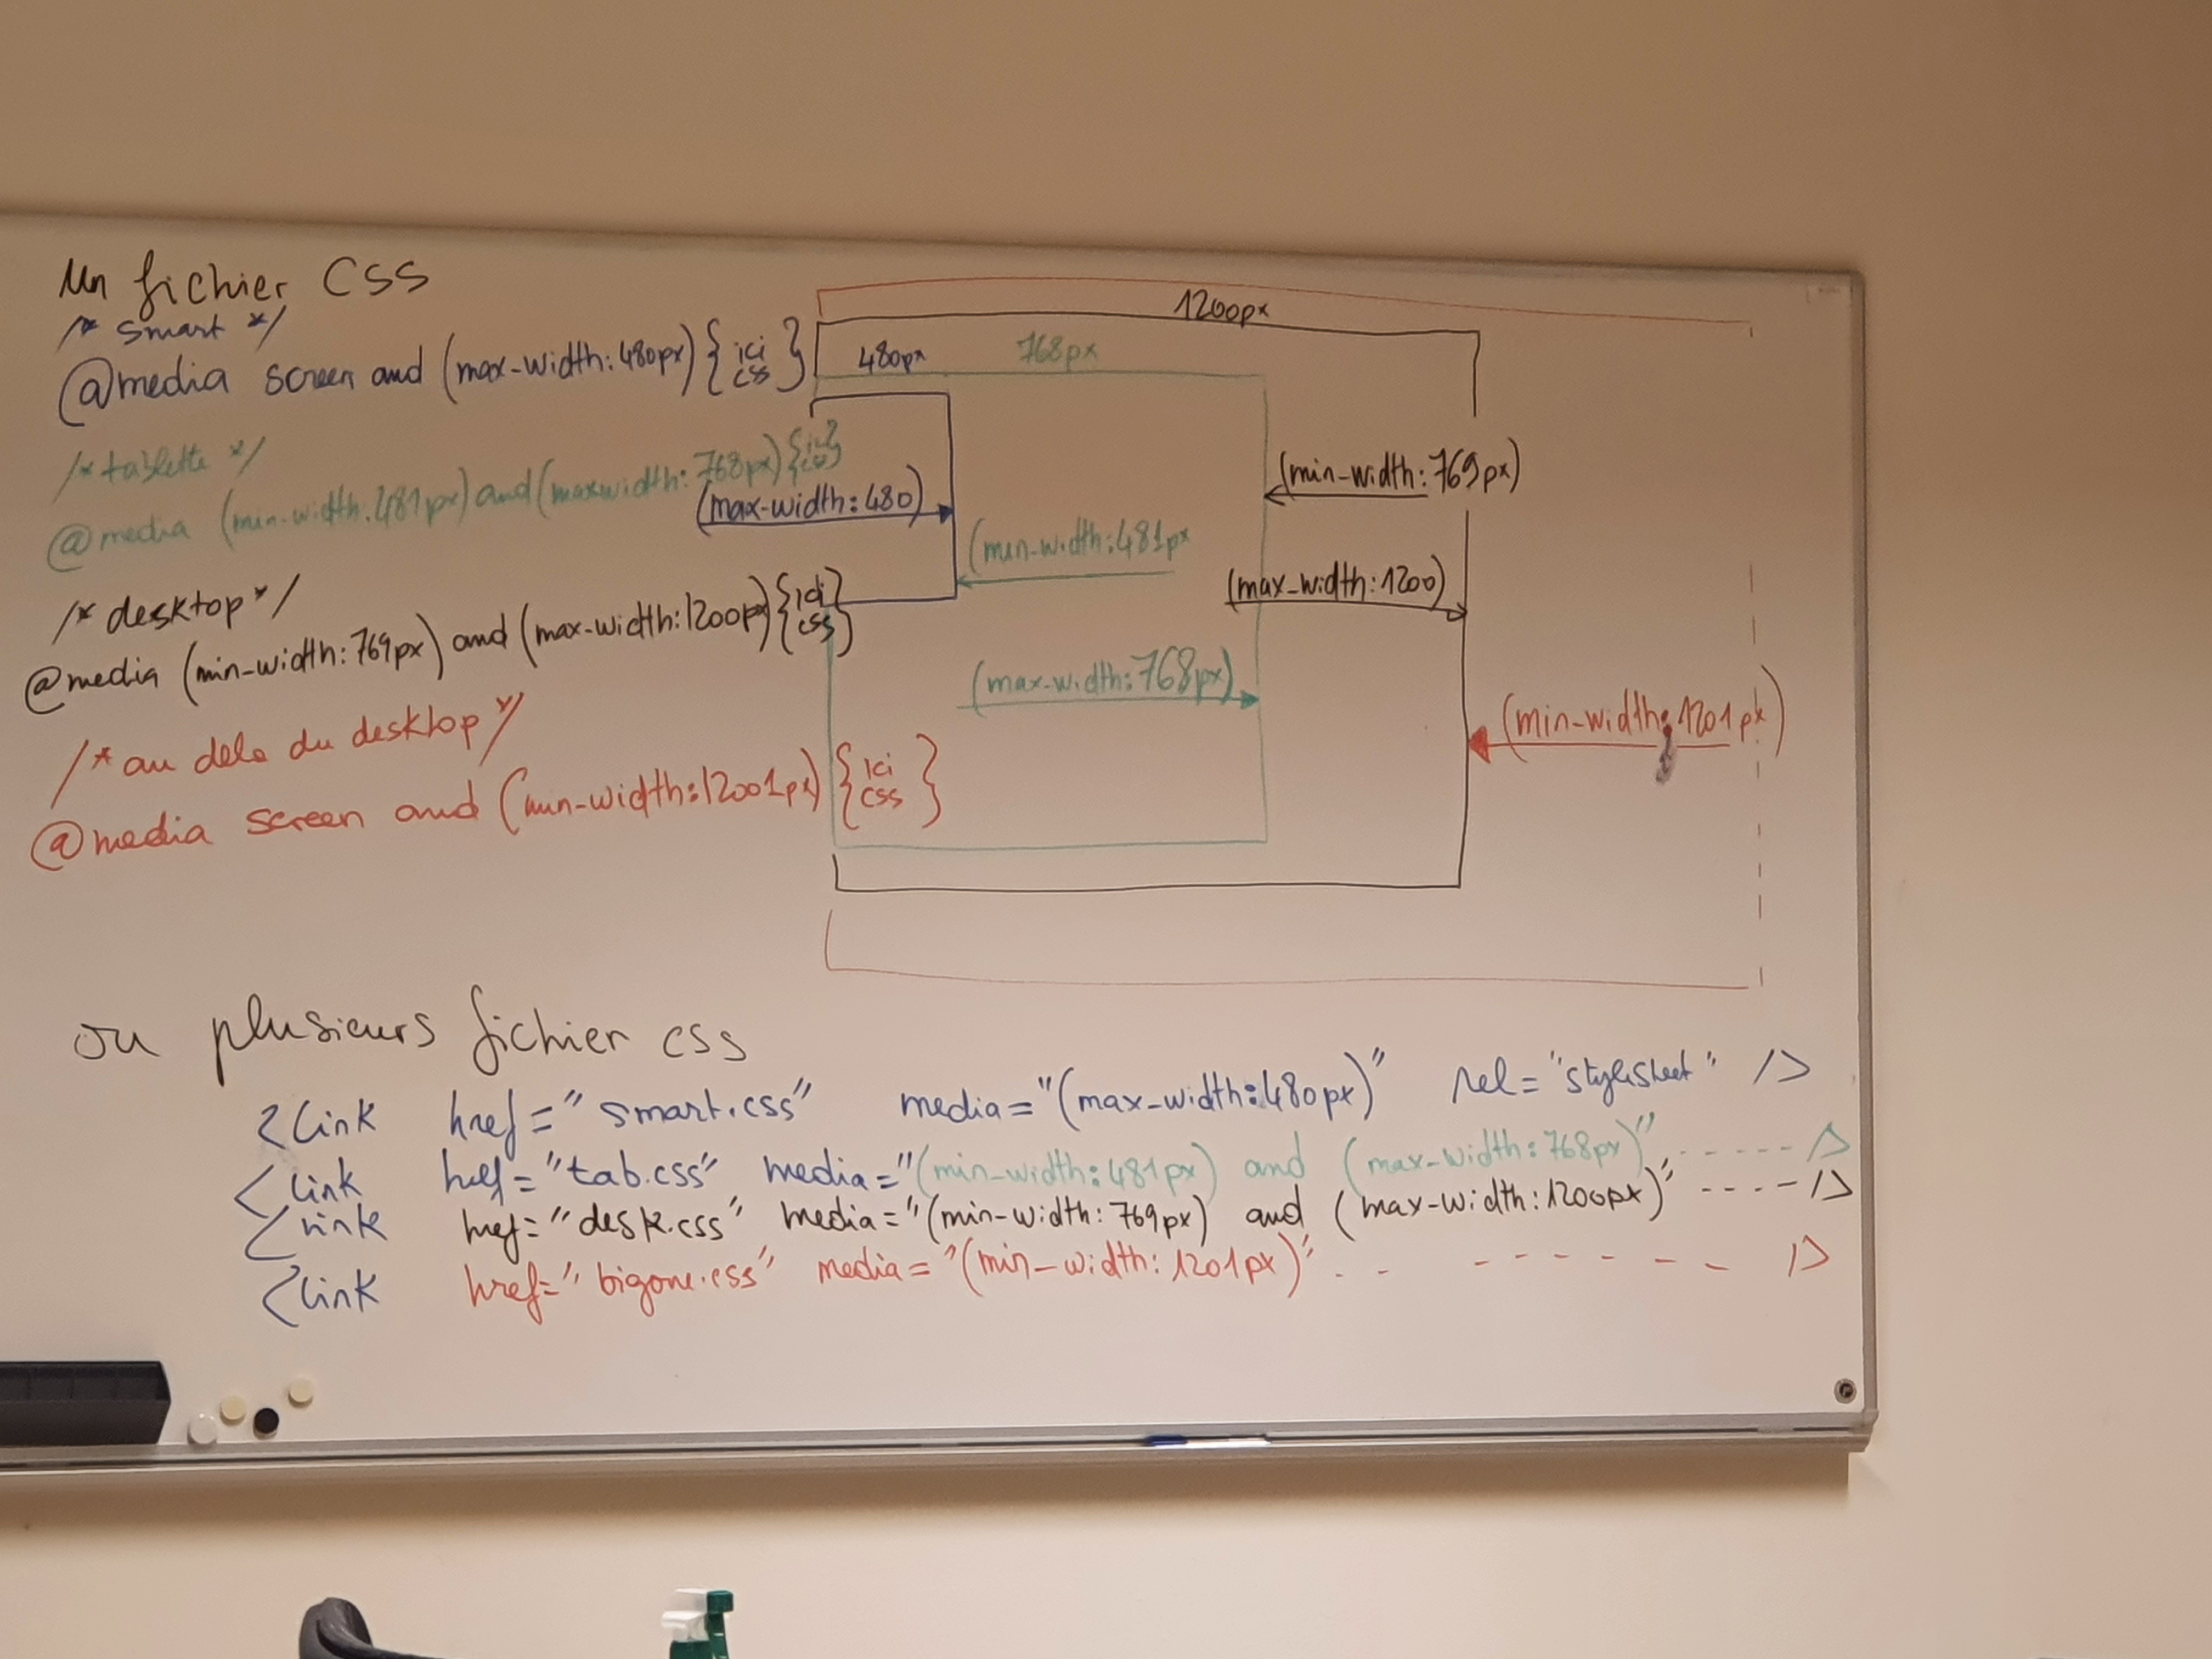 Un fichier CSS
/* smart */
@media screen and (max-width:480px) { ici css }
/* tablette */
@media (min-width:481px) and (maxwidth:768px) {
/* desktop */
@media (min-width:769px) and (max-width:1200px) { ici css }
/* au dela du desktop */
@media screen and (min-width:12001px) { ici css }
1200px
480px
768px
(max-width:480)
(min-width:481px
(max-width:768px)
(min-width:769px)
(max-width:1200)
(min-width:1201px)
ou plusieurs fichier css
<link href="smart.css" media="(max-width:480px)" rel="stylesheet" />
<link href="tab.css" media="(min-width:481px) and (max-width:768px)" ------ />
<link href="desk.css" media="(min-width:769px) and (max-width:1200px)" ---- />
<link href="bigone.css" media="(min-width:1201px)" - - - - - - - - />